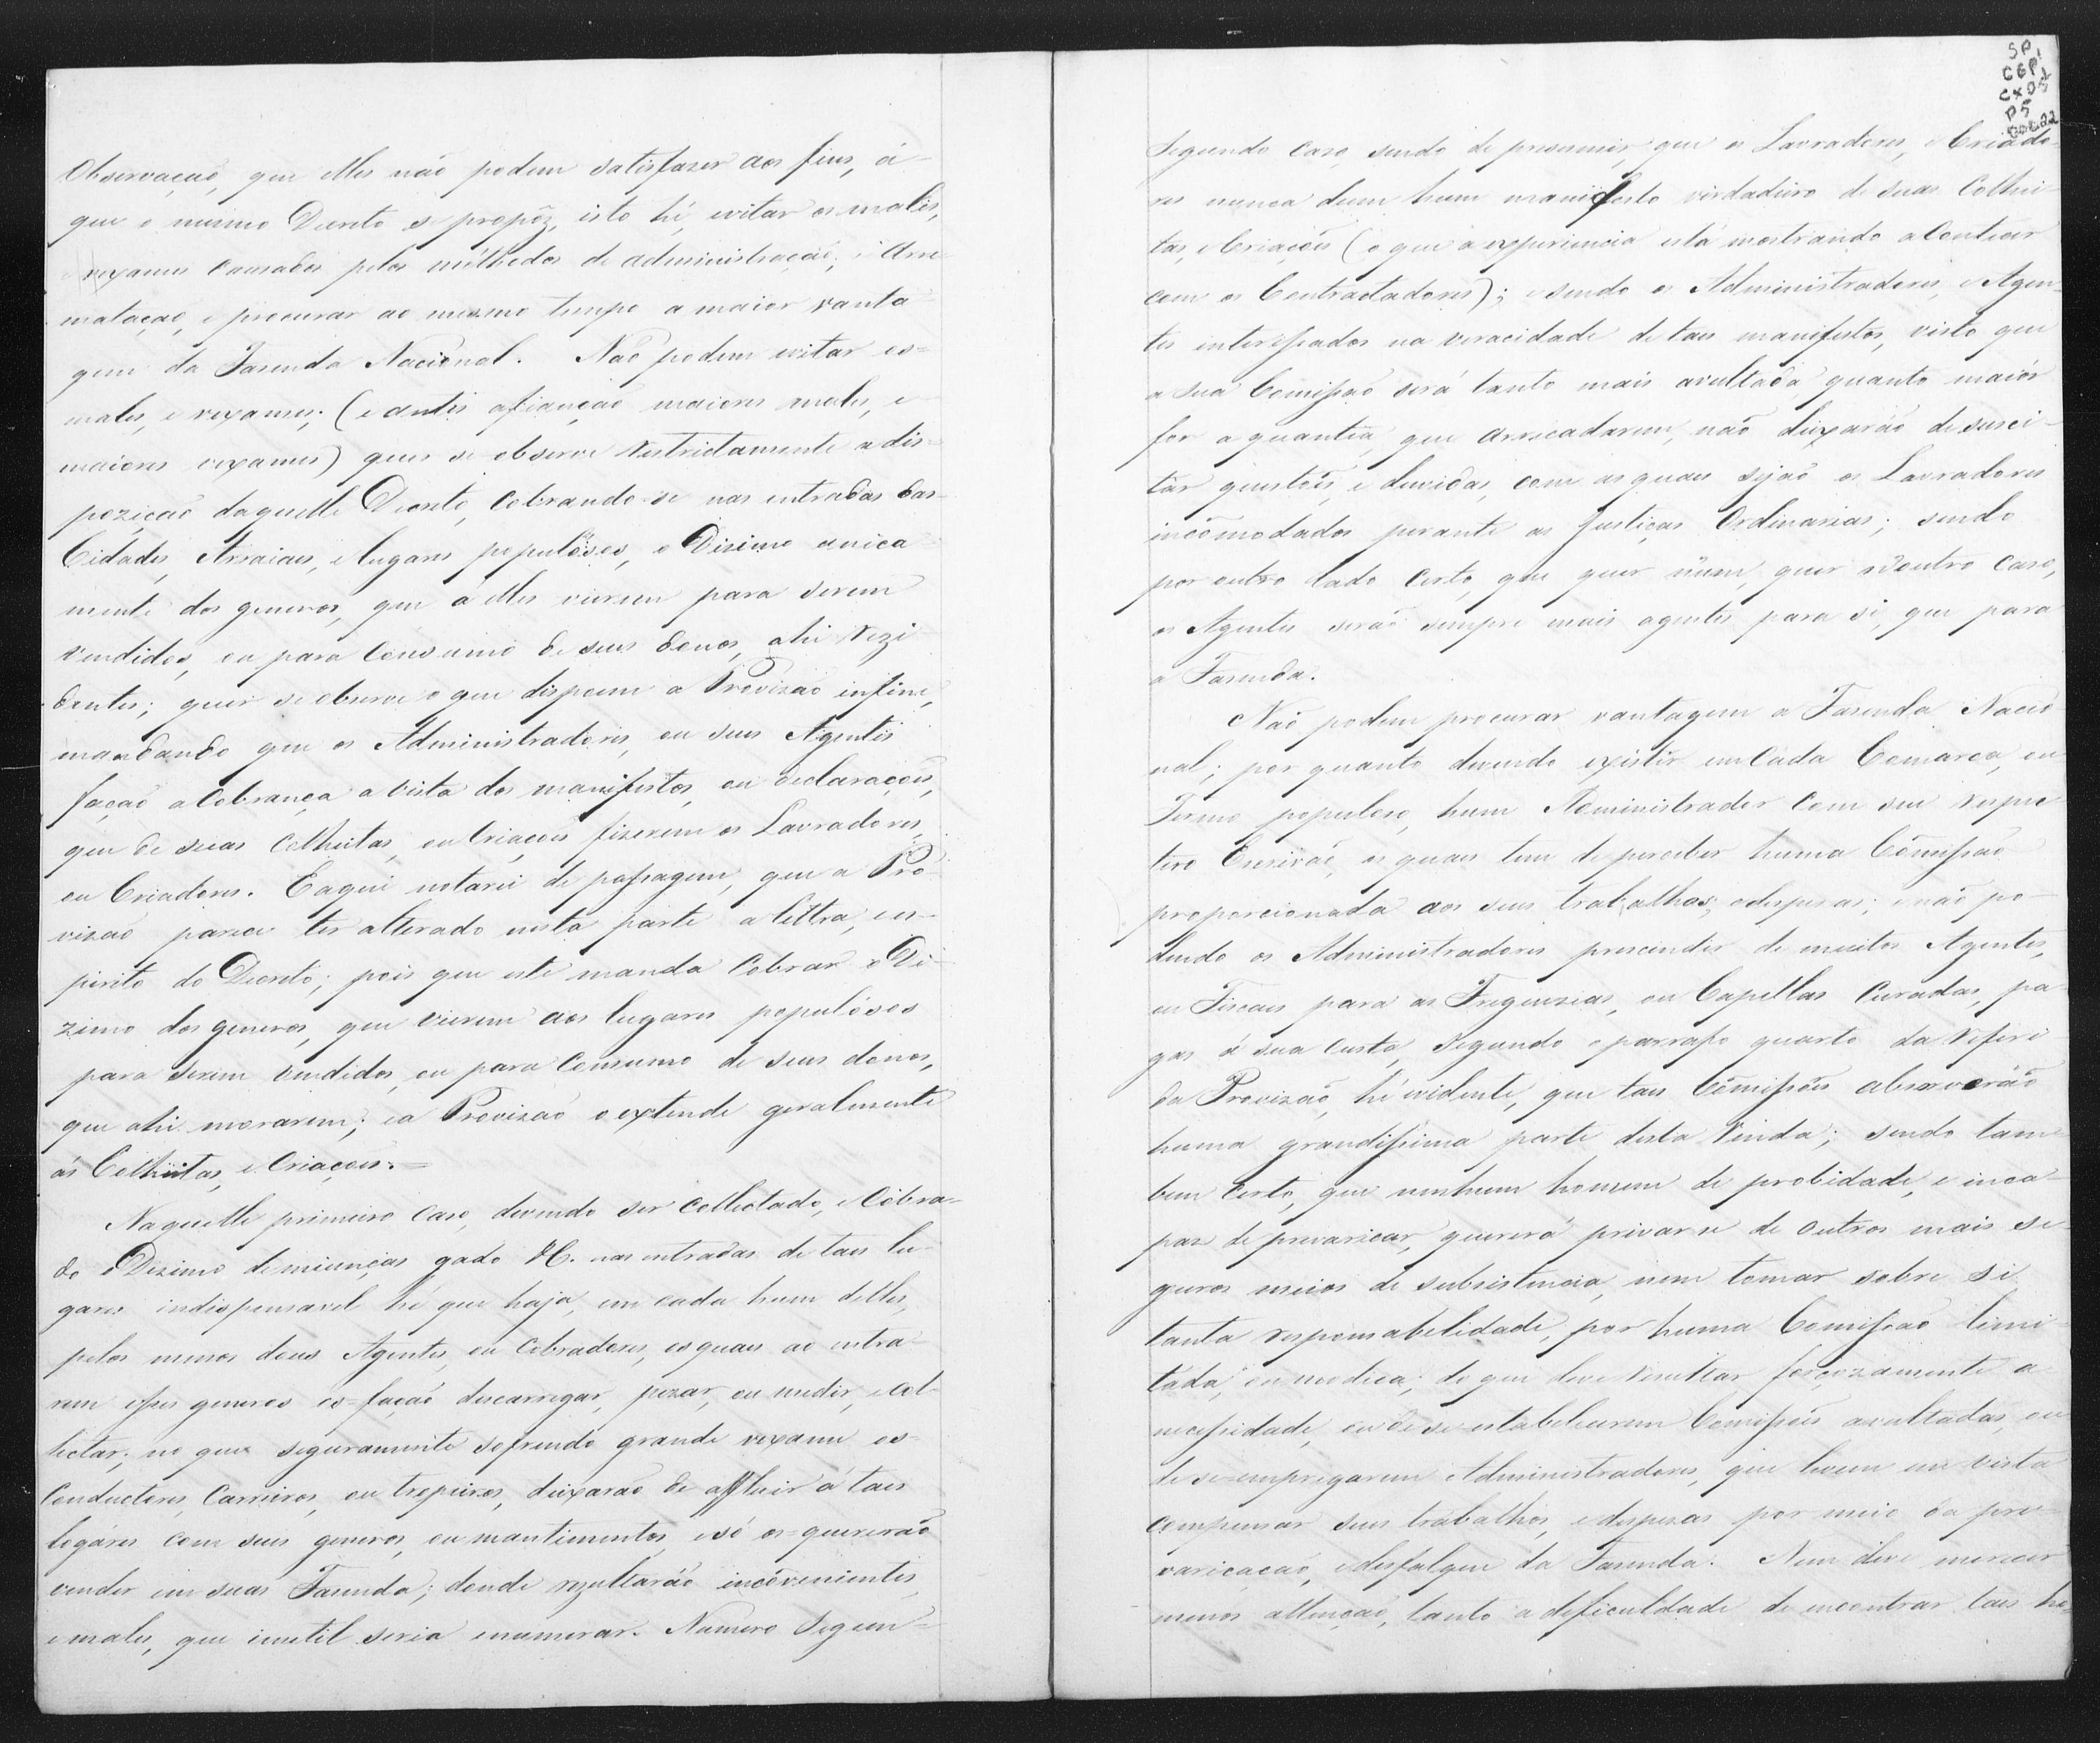 Observaçaõ, que elles naõ podem satisfazer aos fins, á
que o mesmo Decreto se propôz, isto hé, evitar os males,
e vexames causados pelos méthodos de administraçaõ, e Arre
mataçaõ, e procurar ao mesmo tempo a maior vanta
gem da Fasenda Nacional. Naõ podem evitar es=
males, e vexames; (e antes afiançaõ maiores males, e
maiores vexames) quer se observe restrictamente a dis=
poziçaõ daquelle Decreto, Cobrando-se nas entradas das
Cidades, Arraiaes, e lugares populósos, o Disimo unica
mente dos generos, que a elles vierem para serem
vendidos, ou para Consumo de seus donos, ahi rezi
dentes; quer se observe o que dispoem a Provizaõ infine,
mandando que os Administradores, ou seus Agentes
façaõ a Cobrança a vista dos manifestos, ou declaraçoẽs,
que de suas Colheitas, ou Criacoẽs fizerem os Lavradores,
ou Criadores. E aqui notarei de passagem, que a Pro-
vizaõ parece ter alterado nesta parte a lettra, e es-
pirito do Decreto; pois que este manda Cobrar o Di-
zimo dos generos, que vierem aos lugares populósos
para serem vendidos, ou para Consumo de seus donos,
que ahi morarem; e a Provizaõ o extende geralmente
ás Colheitas, e Criaçoẽs.=
Naquelle primeiro Caso, devendo ser Collectado, e Cobra-
do o Dizimo de miunças gado &C. nas entradas de taes lu-
gares indispensavel hé que haja, em cada hum delles,
pelos menos dous Agentes, ou Cobradores, os quaes ao entra-
rem esses generos os=façaõ descarregar, pezar, ou medir, e Col-
lectar; no que seguramente sofrendo grande vexame os-
Conductores, Carreiros, ou tropeiros, deixaraõ de affluir á taes
logáres com seus generos, ou mantimentos, e só os=quereraõ
vender em suas Fasenda; donde rezultaráõ incõvenientes,
e males, que inutil seria enumerar. Numero Segun=
Segundo Caso, sendo de presumir, que os Lavradores, e Criado-
res nunca dem hum manifesto virdadeiro de suas Colhei-
tas, e Criaçoẽs (o que a experiencia está mostrando acontecer
com os Contractadores); e sendo os Administradores, e Agen-
tes interessados na veracidade de taes manifestos, visto que
a sua Comissaõ será tanto mais avultada quanto maiór
for a quantia, que arrecadarem, naõ deixaráõ de susci-
tar questoẽs, e duvidas, com as quaes sejaõ os Lavradores
incõmodados perante as Justiças Ordinarias; sendo
por outro lado Certo, que quer n'um, quer n'outro Caso,
os Agentes seraõ sempre mais agentes para si, que para
a Fasenda.
Naõ podem procurar vantagem a Fasenda Nacio
nal; por quanto devendo existir em Cada Comarca, ou
Termo populoso, hum Administrador Com seu respec
tivo Escrivaõ, os quaes tem de perceber huma Cõmissaõ
proporcionada aos seus trabalhos, e despesas; e naõ po-
dendo os Administradores prescindir de muitos Agentes,
ou Fiscaes para as Freguezias, ou Capellas Curadas, pa
gos á sua Custa, Segundo o parrafo quarto da Referi
da Provizaõ, hé evidente, que taes Cõmissoẽs absorveráõ
huma grandissima parte desta Renda; sendo tam
bem Certo, que nenhum homem de probidade, e inca-
paz de prevaricar, quererá privar se de outros mais se-
guros meios de subsistencia, nem tomar sobre si
tanta responsabelidade, por huma Comissaõ limi-
tada, ou modica; do que deve resultar forçozamente a
necessidade, ou de se estabelecerem Comissoẽs avultadas, ou
de se=empregarem Administradores, que levem em vista
compensar seus trabalhos, e despezas por meio da pre-
varicaçaõ, e desfalque da Fasenda. Nem deve merecer
menos attençaõ, tanto a deficuldade de encontrar taes ho-
SP
CGP1
CX05